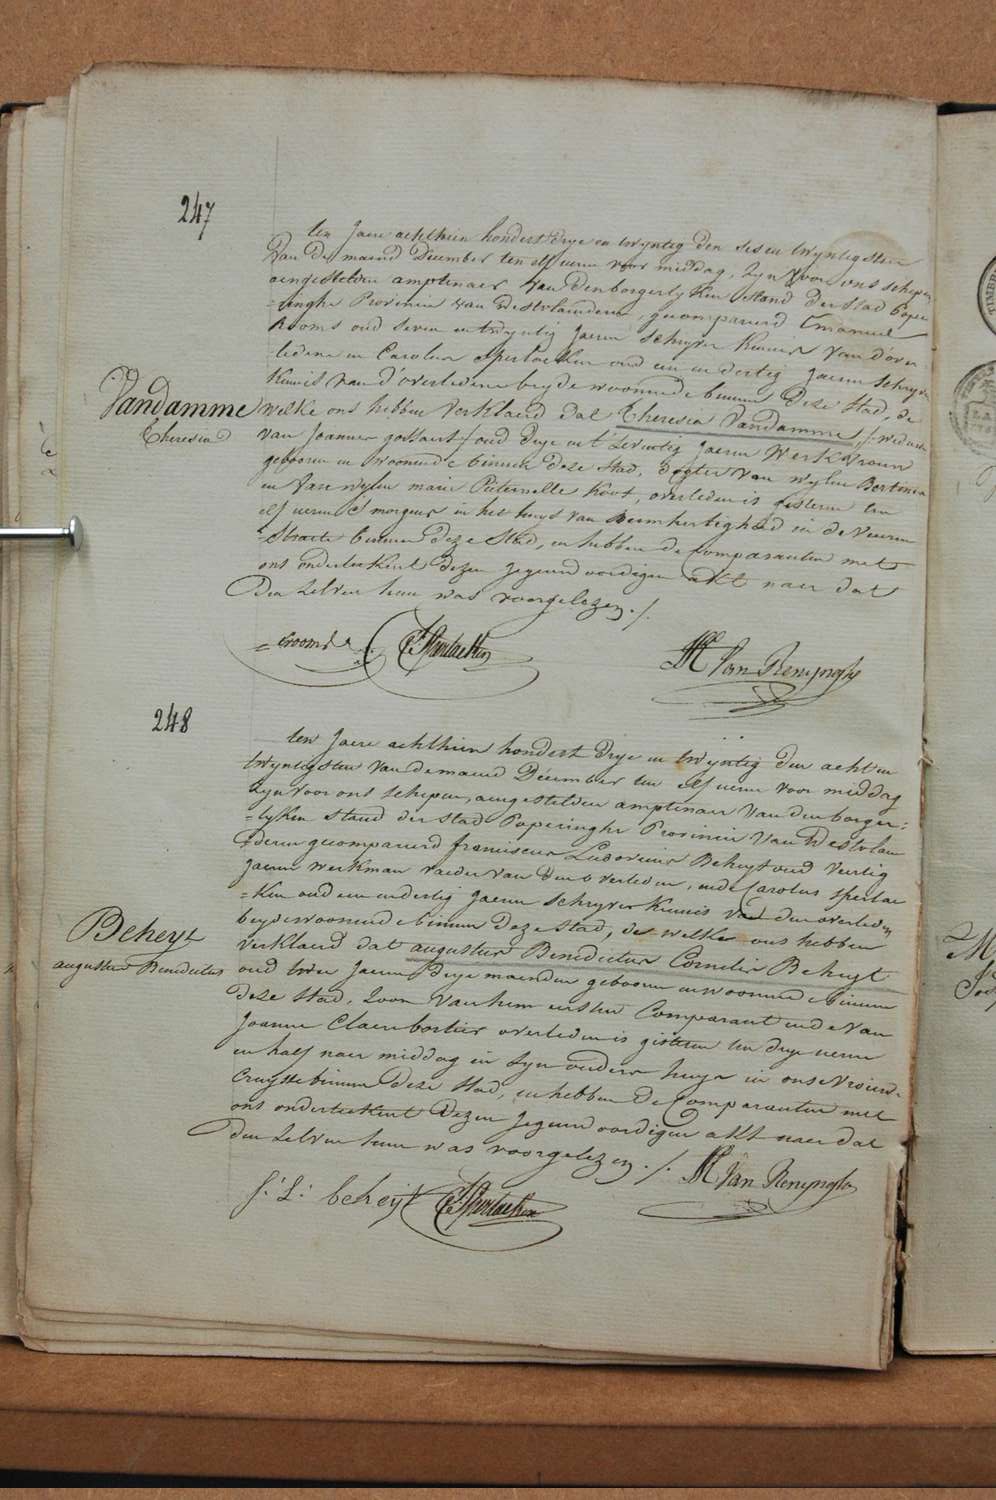 247
ten Jaere achthien hondert drye en twyntig den sesen twyntigsten
Van de maend December ten elf ueren voor middag, Zyn Voor ons schepen
aengestelden amptenaer Van den borgerlyken stand der Stad Pope=
=ringhe Provincie Van Westvlaenderen, gecompareerd Emanuel
Kooms oud seven en twyntig Jaeren schryver Kennis Van d'over
=ledene en Carolus Sperlaeken oud een en dertig Jaeren schryver
Kennis Van d'overledene beyde woonende binnen deze Stad, de
Vandamme welke ons hebben Verklaerd dat Theresia Vandamme, weduwe
Theresia van Joannes gossaert oud drye en t'seventig Jaeren Werkvrouw
gebooren en woonende binnen deze Stad, dogter Van wylen Bertinus
en Van wylen marie Pieternelle Koot, overleden is gisteren ten
elf ueren s'morgens in het huys van Bermhertigheed in de Veurne
=Straete binnen deze Stad, en hebben de Comparanten met
ons onderteekent dezen Jegenwoordigen akt naer dat
Den Zelven hun was voorgelezen ./.
Crooms C Sperlaeken M Van Renynghe
248
ten Jaere achthien hondert drye en twyntig den acht en
twyntigsten Van de maend December ten elf ueren voor middag
Zyn voor ons schepen, aengestelden amptenaer Van den borger=
=lyken stand der stad Poperinghe Provincie Van Westvlaen
=deren gecompareerd franciscus Ludovicus Beheyt oud veertig
Jaeren werkman vaeder van den overleden, ende Carolus Sperlae
=ken oud een en dertig Jaeren schryver Kennis van den overleden
Beheyt beyde woonende binnen deze Stad, de welke ons hebben
augustus Benedictus verklaerd dat augustus Benedictus Cornelis Beheyt
oud twee Jaeren drye maenden gebooren en woonende binnen
deze Stad, Zoon Van hem eersten Comparant ende Van
Joanna Clara bortier overleden is gisteren ten drye ueren
en half naer middag in Zyn ouders huys in onse Vrouw-
Cruysse binnen deze Stad, en hebben de Comparanten met
ons onderteekent Dezen Jegenwoordigen akt naer dat
Den Zelven hun was voorgelezen ./. M Van Renynghe
f: L: beheyt C Sperlaeken